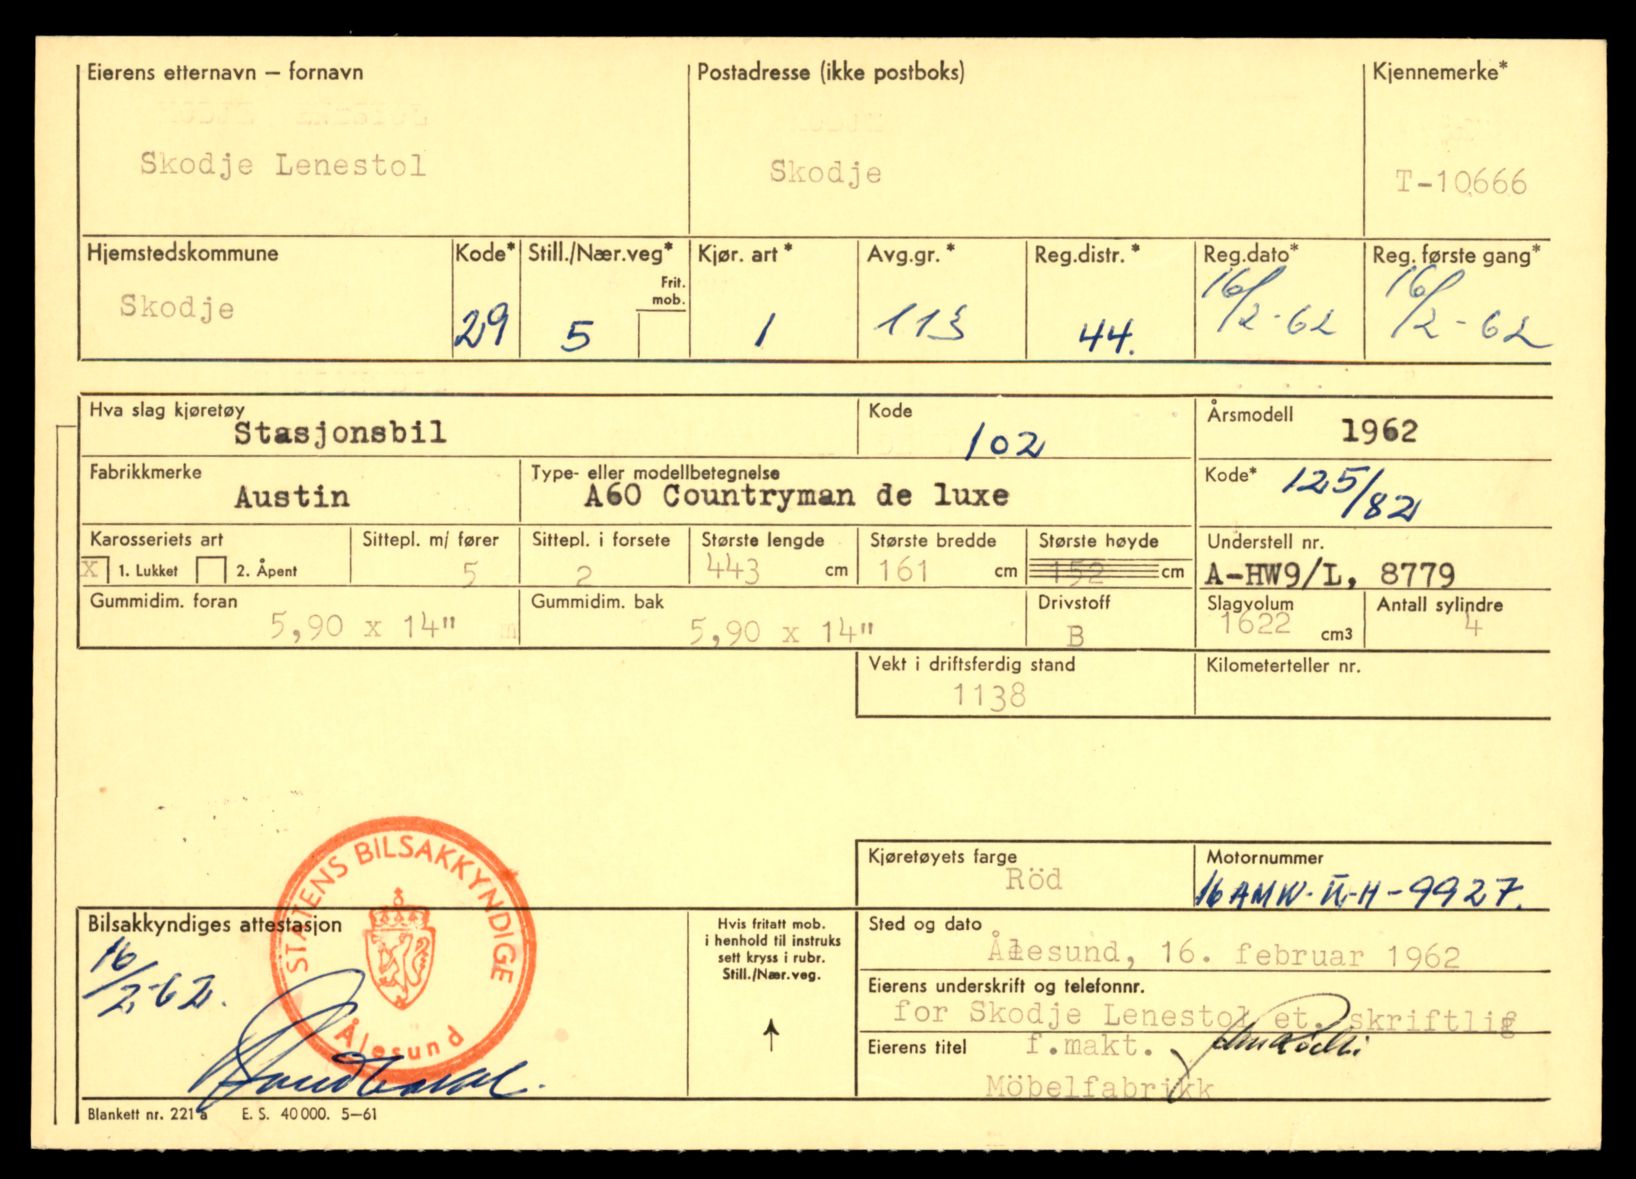 Eierens etternavn – fornavn
Skodje Lenestol
Postadresse (ikke postboks)
Skodje
Kjennemerke*
T-10666
Hjemstedskommune
Skodje
Kode*
29
Still./Nær.veg*
Frit. mob.
5
Kjør. art *
1
Avg.gr. *
113
Reg.distr. *
44.
Reg.dato*
16/2-62
Reg. første gang*
16/2-62
Hva slag kjøretøy
Stasjonsbil
Kode
102
Årsmodell
1962
Fabrikkmerke
Austin
Type- eller modellbetegnelse
A60 Countryman de luxe
Kode*
125/82
Karosseriets art
X 1. Lukket 2. Åpent
Sittepl. m/ fører
5
Sittepl. i forsete
2
Største lengde
443 cm
Største bredde
161 cm
Største høyde
152 cm
Understell nr.
A-HW9/L, 8779
Gummidim. foran
5,90 x 14"
Gummidim. bak
5,90 x 14"
Drivstoff
B
Slagvolum
1622 cm3
Antall sylindre
4
Vekt i driftsferdig stand
1138
Kilometerteller nr.
Kjøretøyets farge
Röd
Motornummer
16AMW-U-H-9927.
Bilsakkyndiges attestasjon
16/2-62.
STATENS BILSAKKYNDIGE
Ålesund
Hvis fritatt mob.
i henhold til instruks
sett kryss i rubr.
Still./Nær.veg.
Sted og dato
Ålesund, 16. februar 1962
Eierens underskrift og telefonnr.
for Skodje Lenestol et. skriftlig
Eierens titel
f.makt.
Möbelfabrikk
Blankett nr. 221 a E. S. 40 000. 5–61